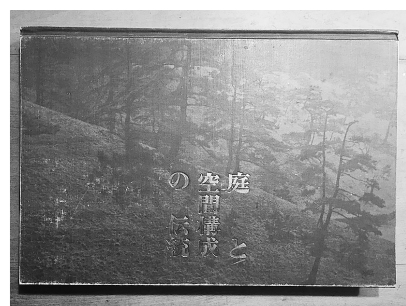 庭と
空間構成
の伝統